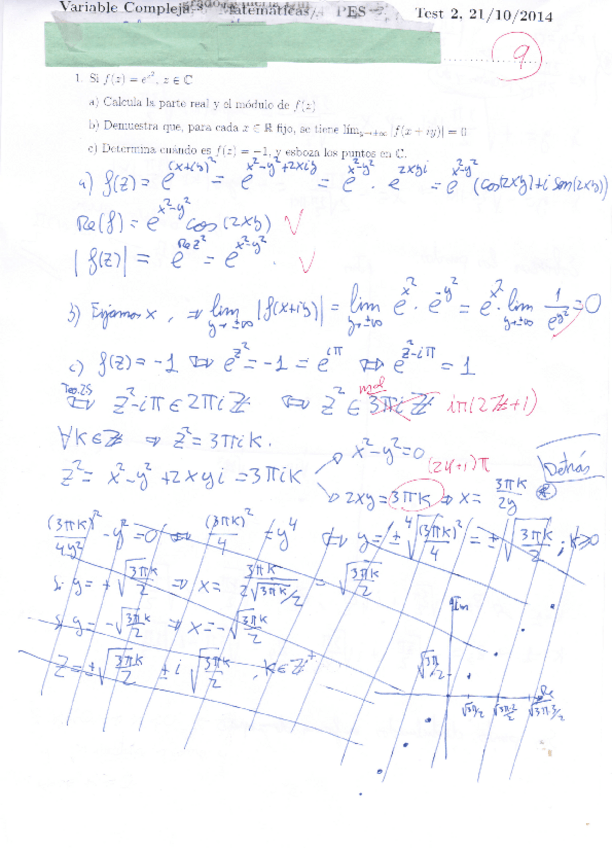 Variable Compleja, Matemáticas, PES Test 2, 21/10/2014
9
1. Si f(z) = e^{z²}, z ∈ C
a) Calcula la parte real y el módulo de f(z)
b) Demuestra que, para cada x ∈ R fijo, se tiene lím_{y→±∞} |f(x + iy)| = 0
c) Determina cuándo es f(z) = −1, y esboza los puntos en C.
a) f(z) = e^{(x+iy)²} = e^{x²-y²+2xiy} = e^{x²-y²} · e^{2xyi} = e^{x²-y²} (cos(2xy)+i sen(2xy))
Re(f) = e^{x²-y²} cos(2xy) √
|f(z)| = e^{Re z²} = e^{x²-y²}. √
b) Fijamos x, ⇒ lim_{y→±∞} |f(x+iy)| = lim_{y→±∞} e^{x²} · e^{-y²} = e^{x²} · lim_{y→±∞} 1/e^{y²} = 0
c) f(z) = -1 ⇔ e^{z²} = -1 = e^{iπ} ⇔ e^{z²-iπ} = 1
⇔ z²-iπ ∈ 2πiZ ⇔ z² ∈ 3πiZ mal iπ(2Z+1)
∀k∈Z ⇒ z² = 3πik.
z² = x²-y² + 2xyi = 3πik
x²-y² = 0
(2k+1)π
2xy = 3πk ⇒ x = 3πk/2y
Detrás
(3πk)²/4y² - y² = 0 ⇔ (3πk)²/4 = y⁴ ⇔ y = ± ⁴√((3πk)²/4) = ± √(3πk/2) ; k≥0
Si y = +√(3πk/2) ⇒ x = 3πk/(2√(3πk/2)) = √(3πk/2)
Si y = -√(3πk/2) ⇒ x = -√(3πk/2)
z = ±√(3πk/2) ± i √(3πk/2), k∈Z⁺
Im
√(3π/2)
Re
√(3π/2) √(3π·2/2) √(3π·3/2)